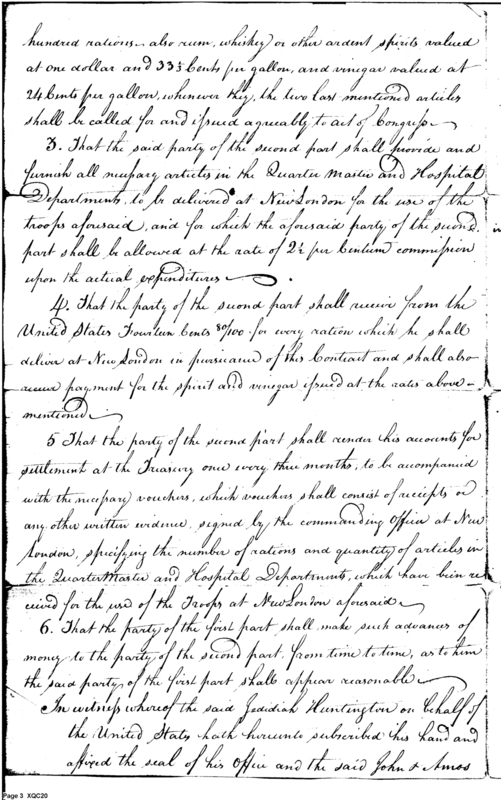 hundred rations also rum, whiskey or other ardent spirits valued
at one dollar and 33⅓ Cents per gallon, and vinegar valued at
24 Cents per gallon, whenever they, the two last mentioned articles
shall be called for and issued agreeably to act of Congress.
3. That the said party of the second part shall provide and
furnish all necessary articles in the Quarter Master and Hospital
Departments, to be delivered at New London for the use of the
troops aforesaid, and for which the aforesaid party of the second
part shall be allowed at the rate of 2½ per Centum commission
upon the actual expenditures
4. That the party of the second part shall receive from the
United States Fourteen Cents 80/100 for every ration which he shall
deliver at New London in pursuance of this Contract and shall also
receive payment for the spirit and vinegar issued at the rates above-
mentioned.
5 That the party of the second part shall render his accounts for
settlement at the Treasury once every three months, to be accompanied
with the necessary vouchers, which vouchers shall consist of receipts or
any other written evidence, signed by the commanding Officer at New
London, specifying the number of rations and quantity of articles in
the Quarter Master and Hospital Departments, which have been re
ceived for the use of the Troops at New London aforesaid
6. That the party of the first part, shall make such advances of
money to the party of the second part, from time to time, as to him
the said party of the first part shall appear reasonable
In witness whereof the said Jedidiah Huntington on behalf of
the United States hath hereunto subscribed his hand and
affixed the seal of his Office and the said John & Amos
Page 3 XQC20